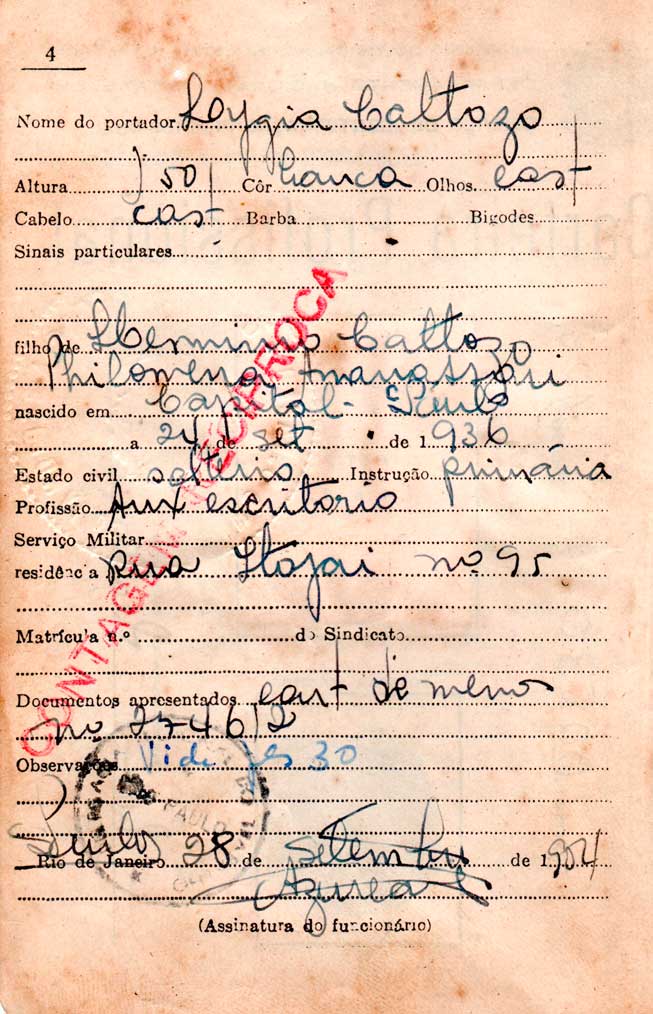 4
Nome do portador Lygia Caltozo
Altura 1,50 Côr branca Olhos cast
Cabelo cast Barba Bigodes
Sinais particulares
filho de Herminio Caltozo
Philomena
nascido em Capital - S. Paulo
a 24 de set de 1.936
Estado civil solteiro Instrução primária
Profissão Aux escritorio
Serviço Militar
residência Rua Itajai nº 95
Matrícula n.º do Sindicato
Documentos apresentados cart de menor
nº 274612
Observações Vide fls 30
S. Paulo
Rio de Janeiro 28 de Setembro de 1.954
(Assinatura do funcionário)
CONTAGEM RECIPROCA
PAULO